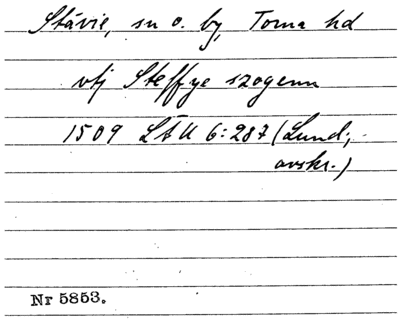 Stävie, sn o. by, Torna hd
vtj Steffye szogenn
1509 LÄU 6:287 (Lund;
avskr.)
Nr 5853.